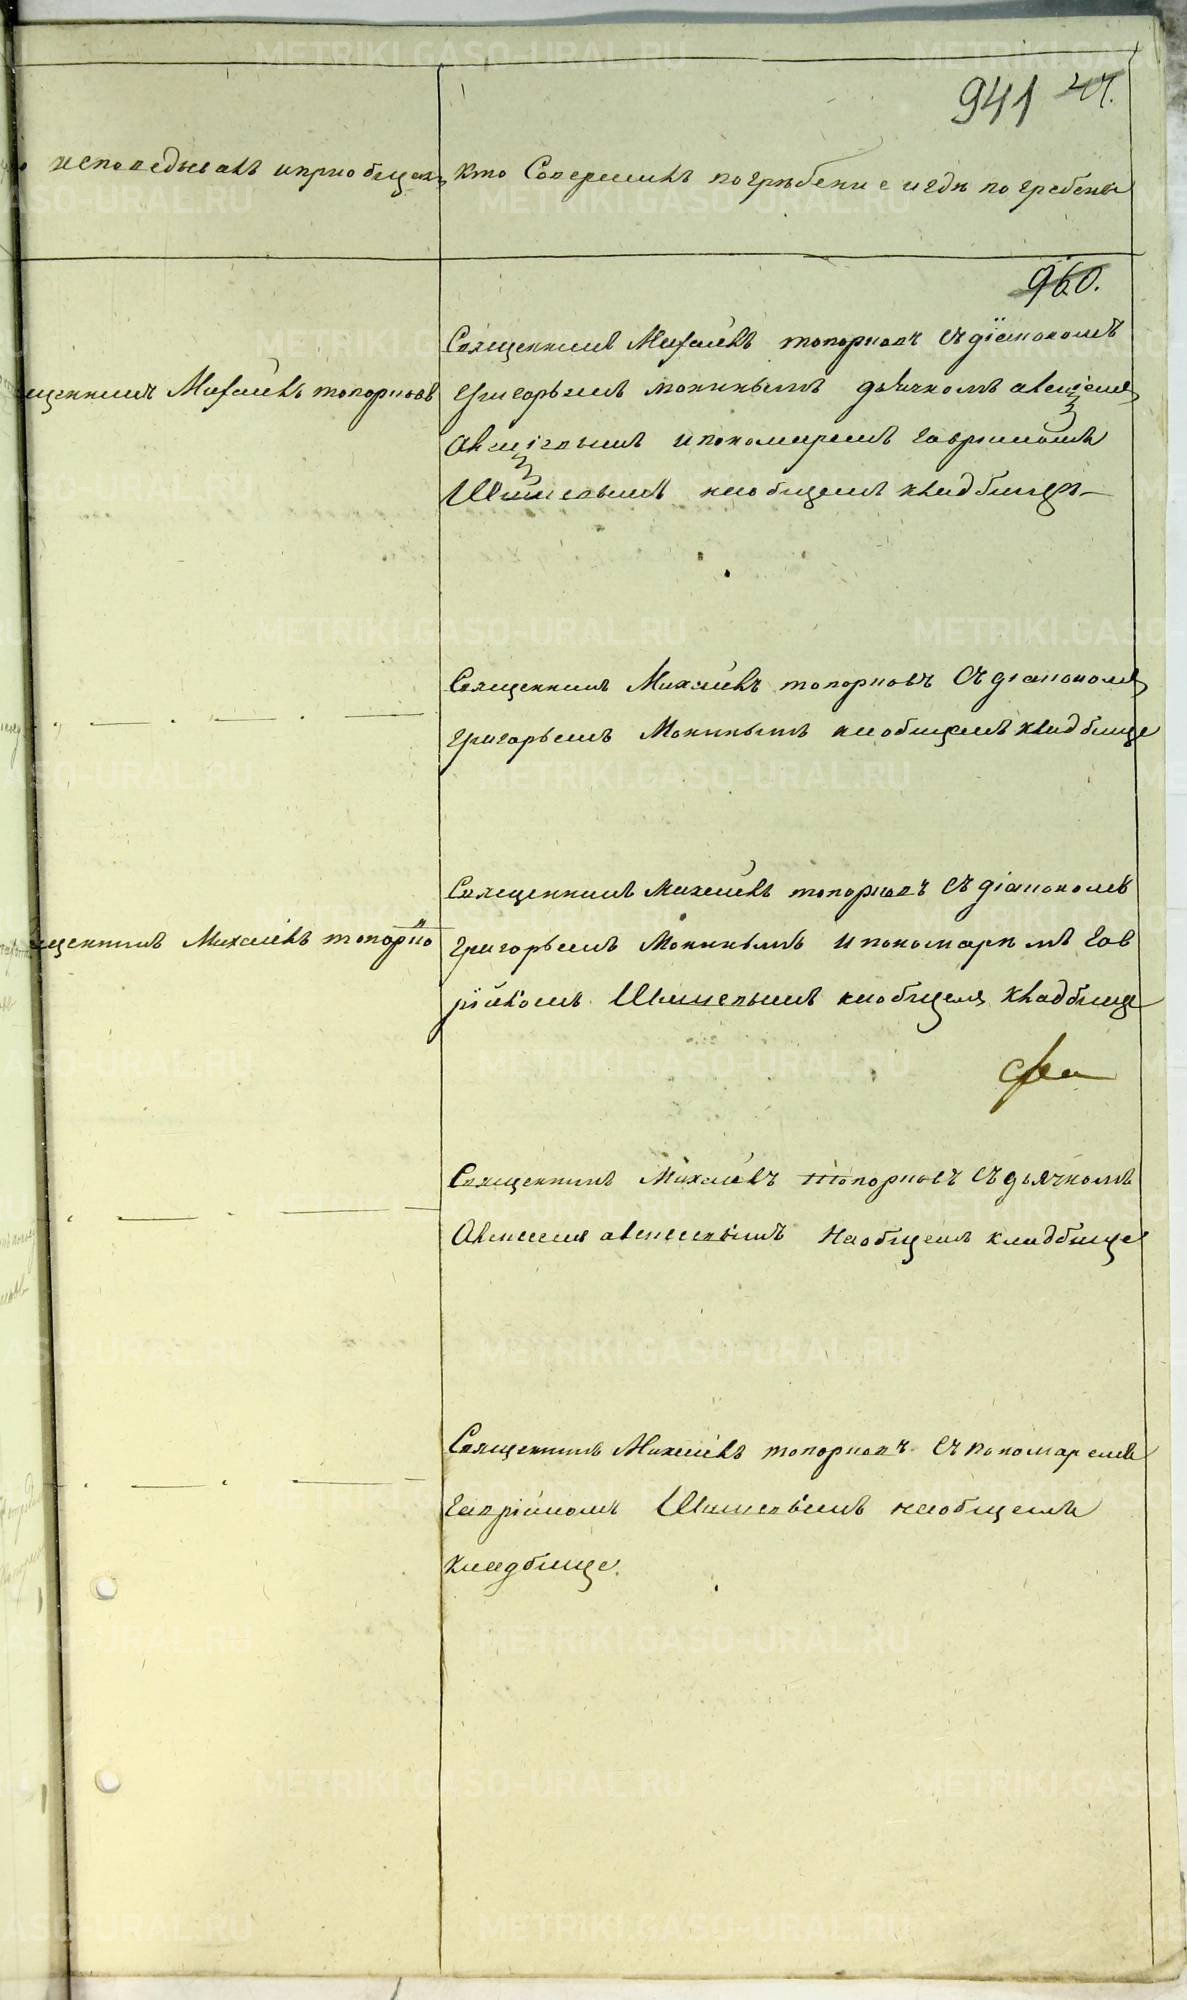 941
исповедывалъ и приобщалъ
Кто Совершилъ погрѣбение и гдѣ погребены
960.
Священникъ Михаилъ топорковъ Съ діакономъ
щенникъ Михаилъ топорковъ
григорьемъ мокинымъ дьячкомъ алексіемъ
алексіевымъ и пономаремъ гавриломъ
наобщемъ кладбищѣ
Священникъ Михаилъ топорковъ Съ діакономъ
григорьемъ Мокинымъ наобщемъ кладбище
Священникъ михаилъ топорковъ Съ діакономъ
щенникъ Михаилъ топорко
григорьемъ Мокинымъ и пономаремъ гав
ріиломъ наобщемъ кладбище
Священникъ Михаилъ топорковъ Съ дьячкомъ
Алексеемъ алексеевымъ Наобщемъ кладбище
Священникъ Михаилъ топорковъ Съ пономаремъ
гавріиломъ наобщемъ
кладбище.